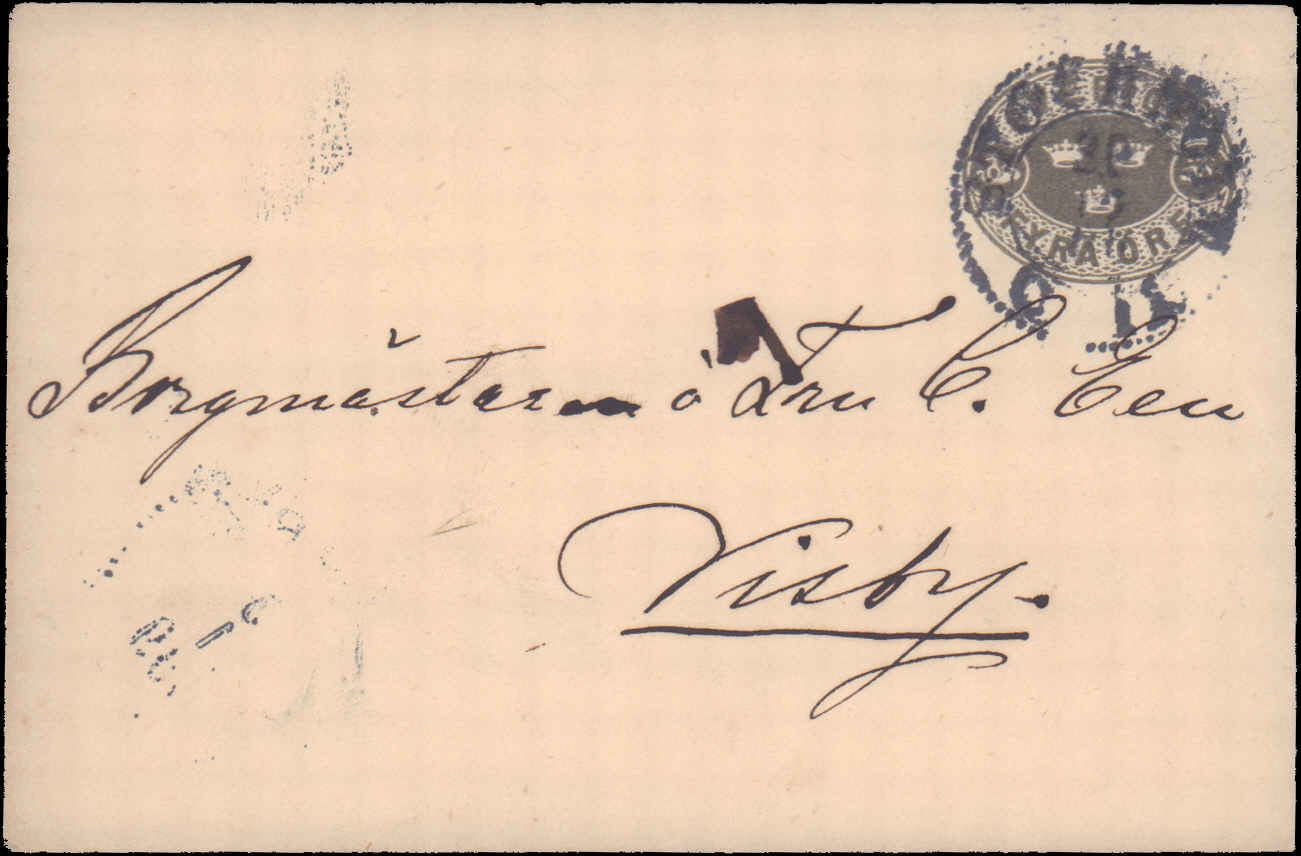 STOCKHOLM
FYRA ÖRE
Borgmästaren o Fru C. Een
Visby.